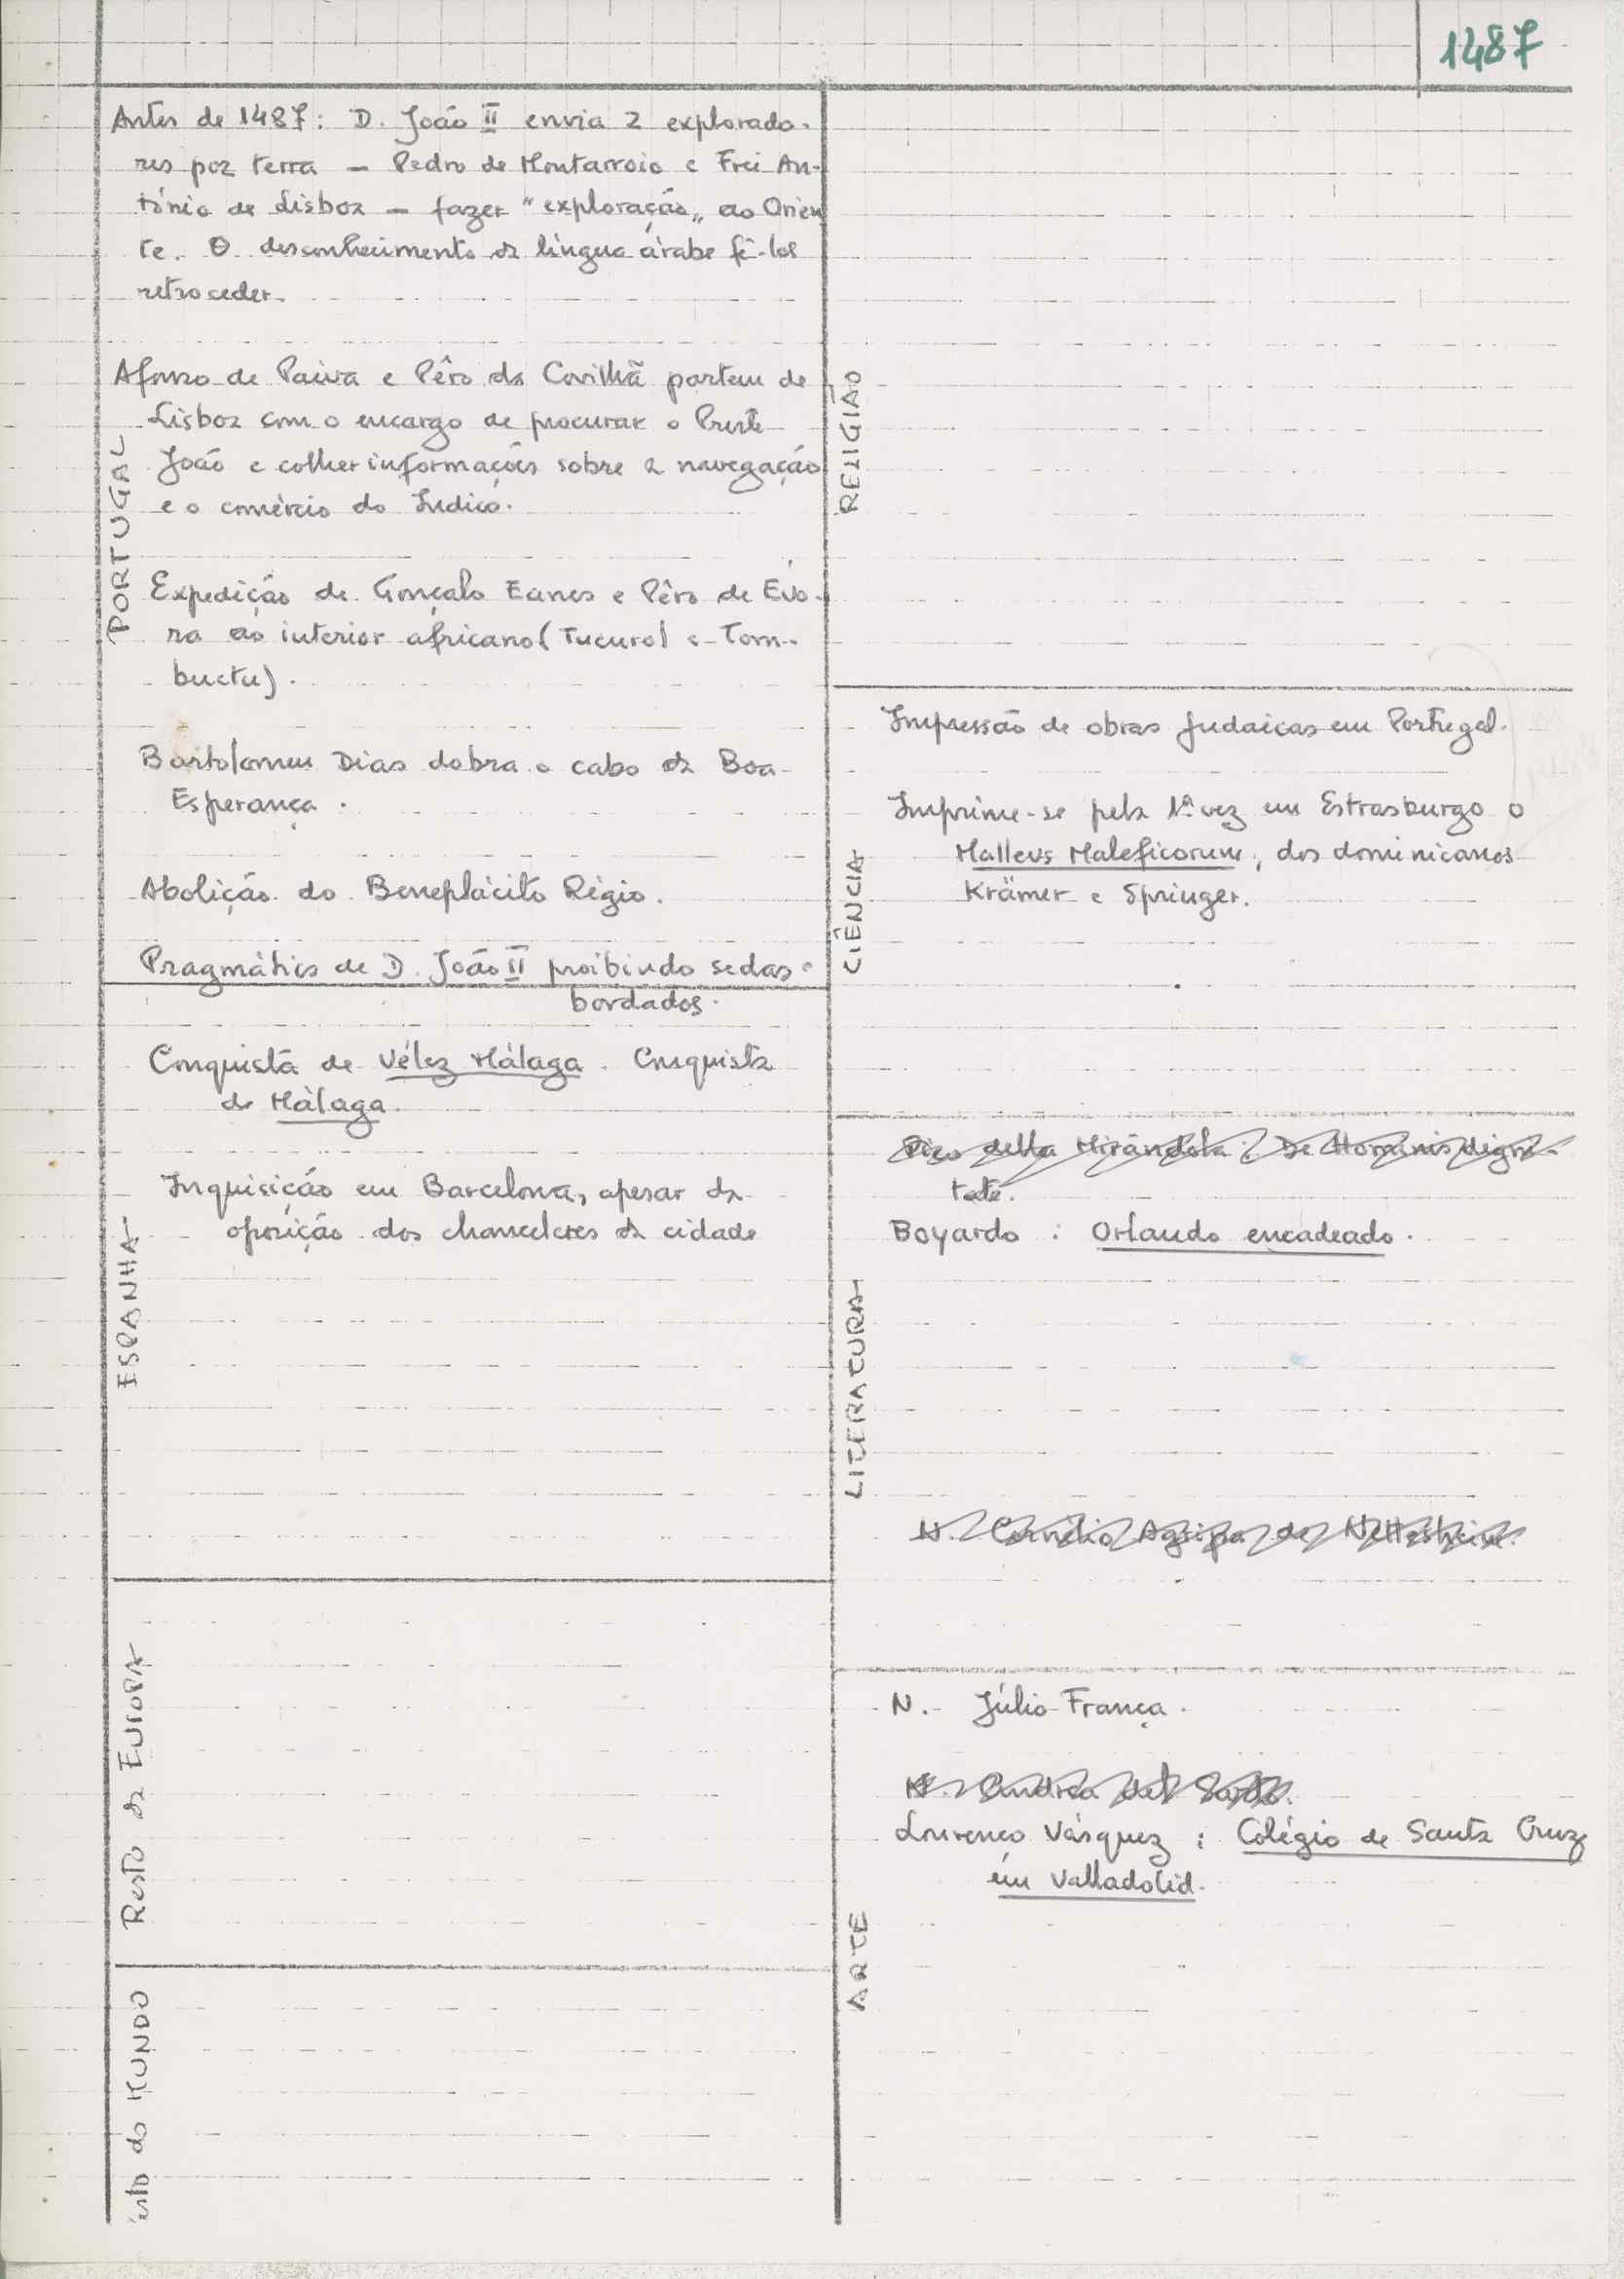 1487
PORTUGAL
Antes de 1487: D. João II envia 2 explorado-
res por terra – Pedro de Montarroio e Frei An-
tónio de Lisboa – fazer "exploração" ao Orien
te. O desconhecimento da língua árabe fê-los
retroceder.
Afonso de Paiva e Pêro da Covilhã partem de
Lisboa com o encargo de procurar o Preste
João e colher informações sobre a navegação
e o comércio do Índico.
Expedição de Gonçalo Eanes e Pêro de Évo-
ra ao interior africano (Tucurol e Tom-
buctu).
Bartolomeu Dias dobra o cabo da Boa
Esperança.
Abolição do Beneplácito Régio.
Pragmática de D. João II proibindo sedas e
bordados.
ESPANHA
Conquista de Vélez Málaga. Conquista
de Málaga.
Inquisição em Barcelona, apesar da
oposição dos chanceleres da cidade
Resto da EUROPA
esto do MUNDO
RELIGIÃO
CIÊNCIA
Impressão de obras judaicas em Portugal.
Imprime-se pela 1ª vez em Estrasburgo o
Malleus Maleficorum, dos dominicanos
Krämer e Springer.
LITERATURA
Pico della Mirândola: De Hominis digni-
tate.
Boyardo : Orlando encadeado.
N. Cornélio Agripa de Nettesheim.
ARTE
N. Júlio França.
N. Andrea del Sarto.
Lourenço Vásquez : Colégio de Santa Cruz
em Valladolid.